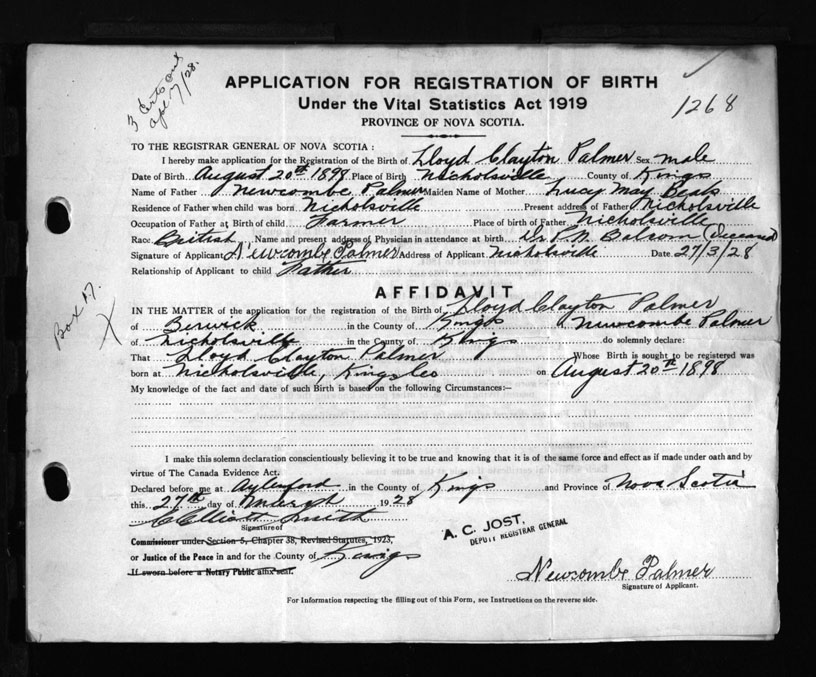 3 Certs out
apl 7/28.
APPLICATION FOR REGISTRATION OF BIRTH
Under the Vital Statistics Act 1919
1268
PROVINCE OF NOVA SCOTIA.
TO THE REGISTRAR GENERAL OF NOVA SCOTIA:
I hereby make application for the Registration of the Birth of Lloyd Clayton Palmer Sex male
Date of Birth August 20th 1898 Place of Birth Nicholsville County of Kings
Name of Father Newcombe Palmer Maiden Name of Mother Lucy May Beals
Residence of Father when child was born Nicholsville Present address of Father Nicholsville
Occupation of Father at Birth of child Farmer Place of birth of Father Nicholsville
Race British Name and present address of Physician in attendance at birth Dr P.N. Balcom (Deceased)
Signature of Applicant Newcombe Palmer Address of Applicant Nicholsville Date 27/3/28
Relationship of Applicant to child Father
Box 17.
X
AFFIDAVIT
IN THE MATTER of the application for the registration of the Birth of Lloyd Clayton Palmer
of Berwick in the County of Kings I Newcombe Palmer
of Nicholsville in the County of Kings do solemnly declare:
That Lloyd Clayton Palmer Whose Birth is sought to be registered was
born at Nicholsville, Kings Co on August 20th 1898
My knowledge of the fact and date of such Birth is based on the following Circumstances:-
I make this solemn declaration conscientiously believing it to be true and knowing that it is of the same force and effect as if made under oath and by
virtue of The Canada Evidence Act.
Declared before me at Aylesford in the County of Kings and Province of Nova Scotia
this 27th day of March 1928
Smith
Signature of
Commissioner under Section 5, Chapter 38, Revised Statutes, 1923,
or Justice of the Peace in and for the County of Kings
If sworn before a Notary Public affix seal.
A. C. JOST,
DEPUTY REGISTRAR GENERAL
Newcombe Palmer
Signature of Applicant.
For Information respecting the filling out of this Form, see Instructions on the reverse side.